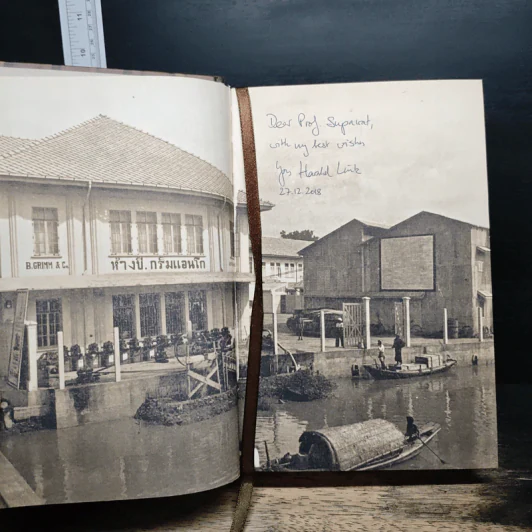 B. GRIMM & Co.
ห้างบี.กริมแอนโก
Dear Prof Suprawat,
with my best wishes
Yrs Harald Link
27.12.2018
11
10